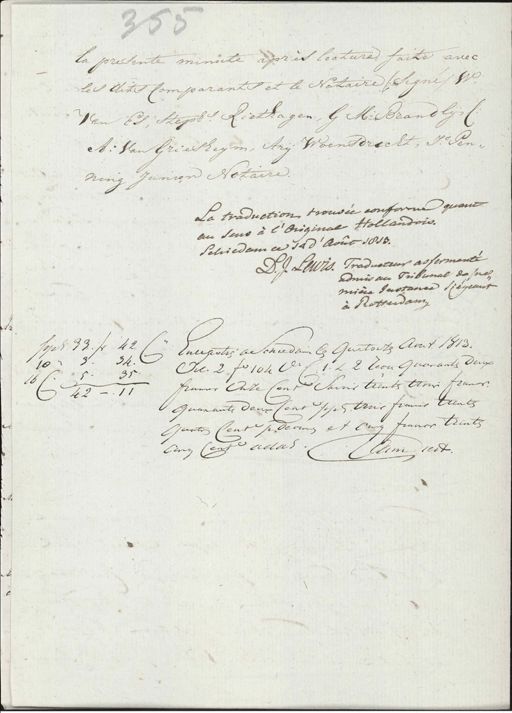 355
la presente minute après lecture faite avec
les dits Comparants et le Notaire, (signé) W.
Van Es, Steph.s Riethagen, G. M. Brandligt C.
A. Van Griesheym, Ary Woensdrecht, Pen-
ning Junior Notaire.
La traduction trouvée conforme quant
au sens à l'Original Hollandois.
Schiedam ce 14 d'Août 1813.
D. J. Lewis. Traducteur assermenté
admis au Tribunal de pre-
mière Instance Séant
à Rotterdam
33. f 42
10 3. 34.
5. 35
42 - 11
Enregistré à Schiedam le Quatorze Août 1813.
Vol. 2 f.o 104 V.o C. 1 & 2 Reçu Quarante Deux
francs Onze Cent.s Savoir trente trois francs
quarante deux Cent.s trois francs trente
quatre Cent.s p. Decime et cinq francs trente
cinq Cent.s